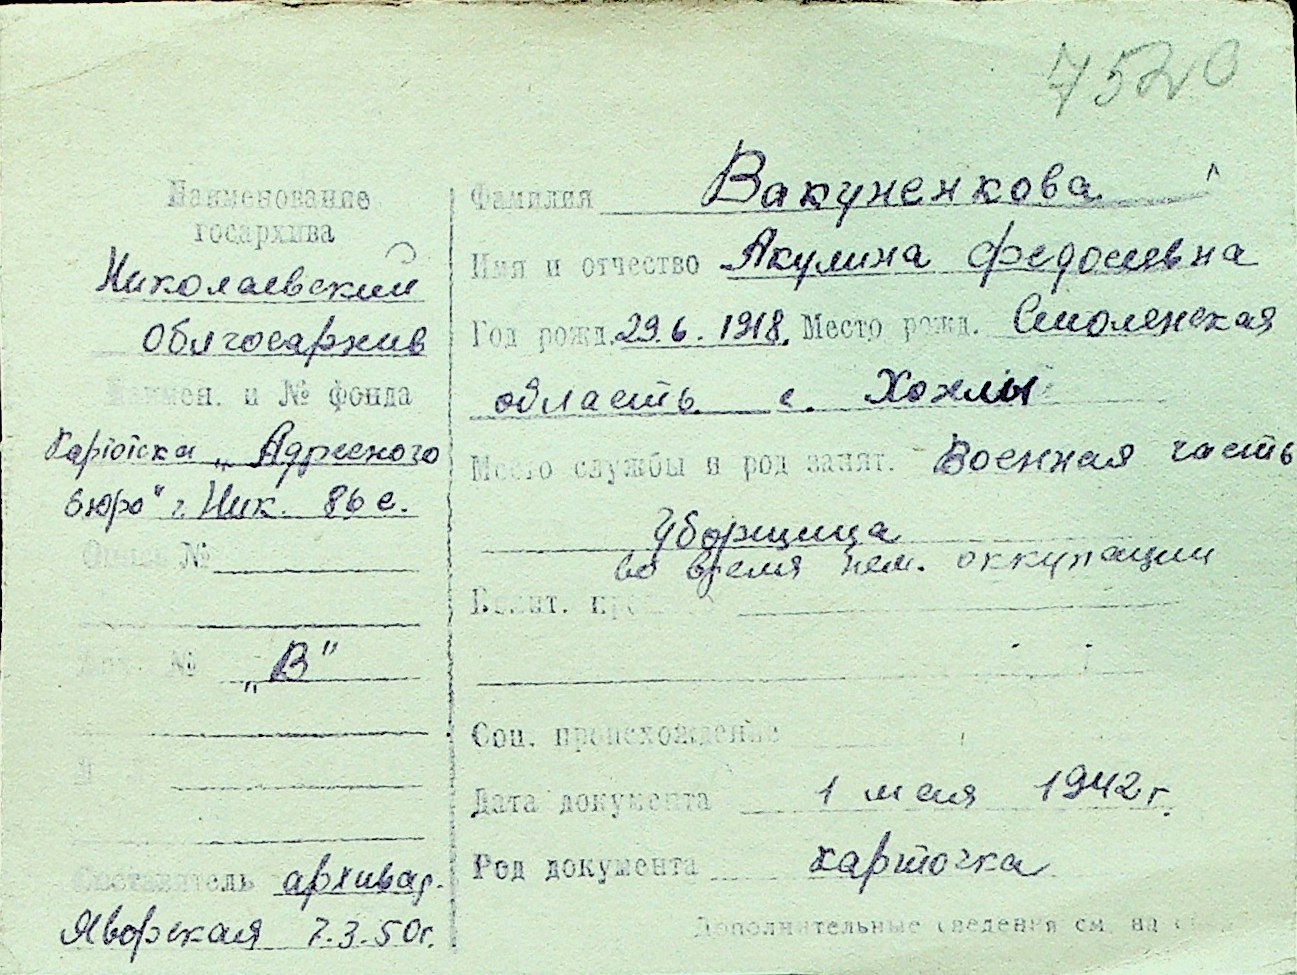 7520
Наименование
госархива
Николаевский
Облгосархив
Наимен. и № фонда
Картотека „Адресного
бюро" г. Ник. 86 с.
Опись №
№ „В"
Составитель архивар.
Яворская 7.3.50г.
Фамилия Вакуненкова
Имя и отчество Акулина Федосевна
Год рожд. 29.6.1918. Место рожд. Смоленская
область с. Хохлы
Место службы и род занят. Военная часть
Уборщица
во время нем. оккупации
Соц. происхождение
Дата документа 1 мая 1942г.
Род документа карточка
Дополнительные сведения см. на